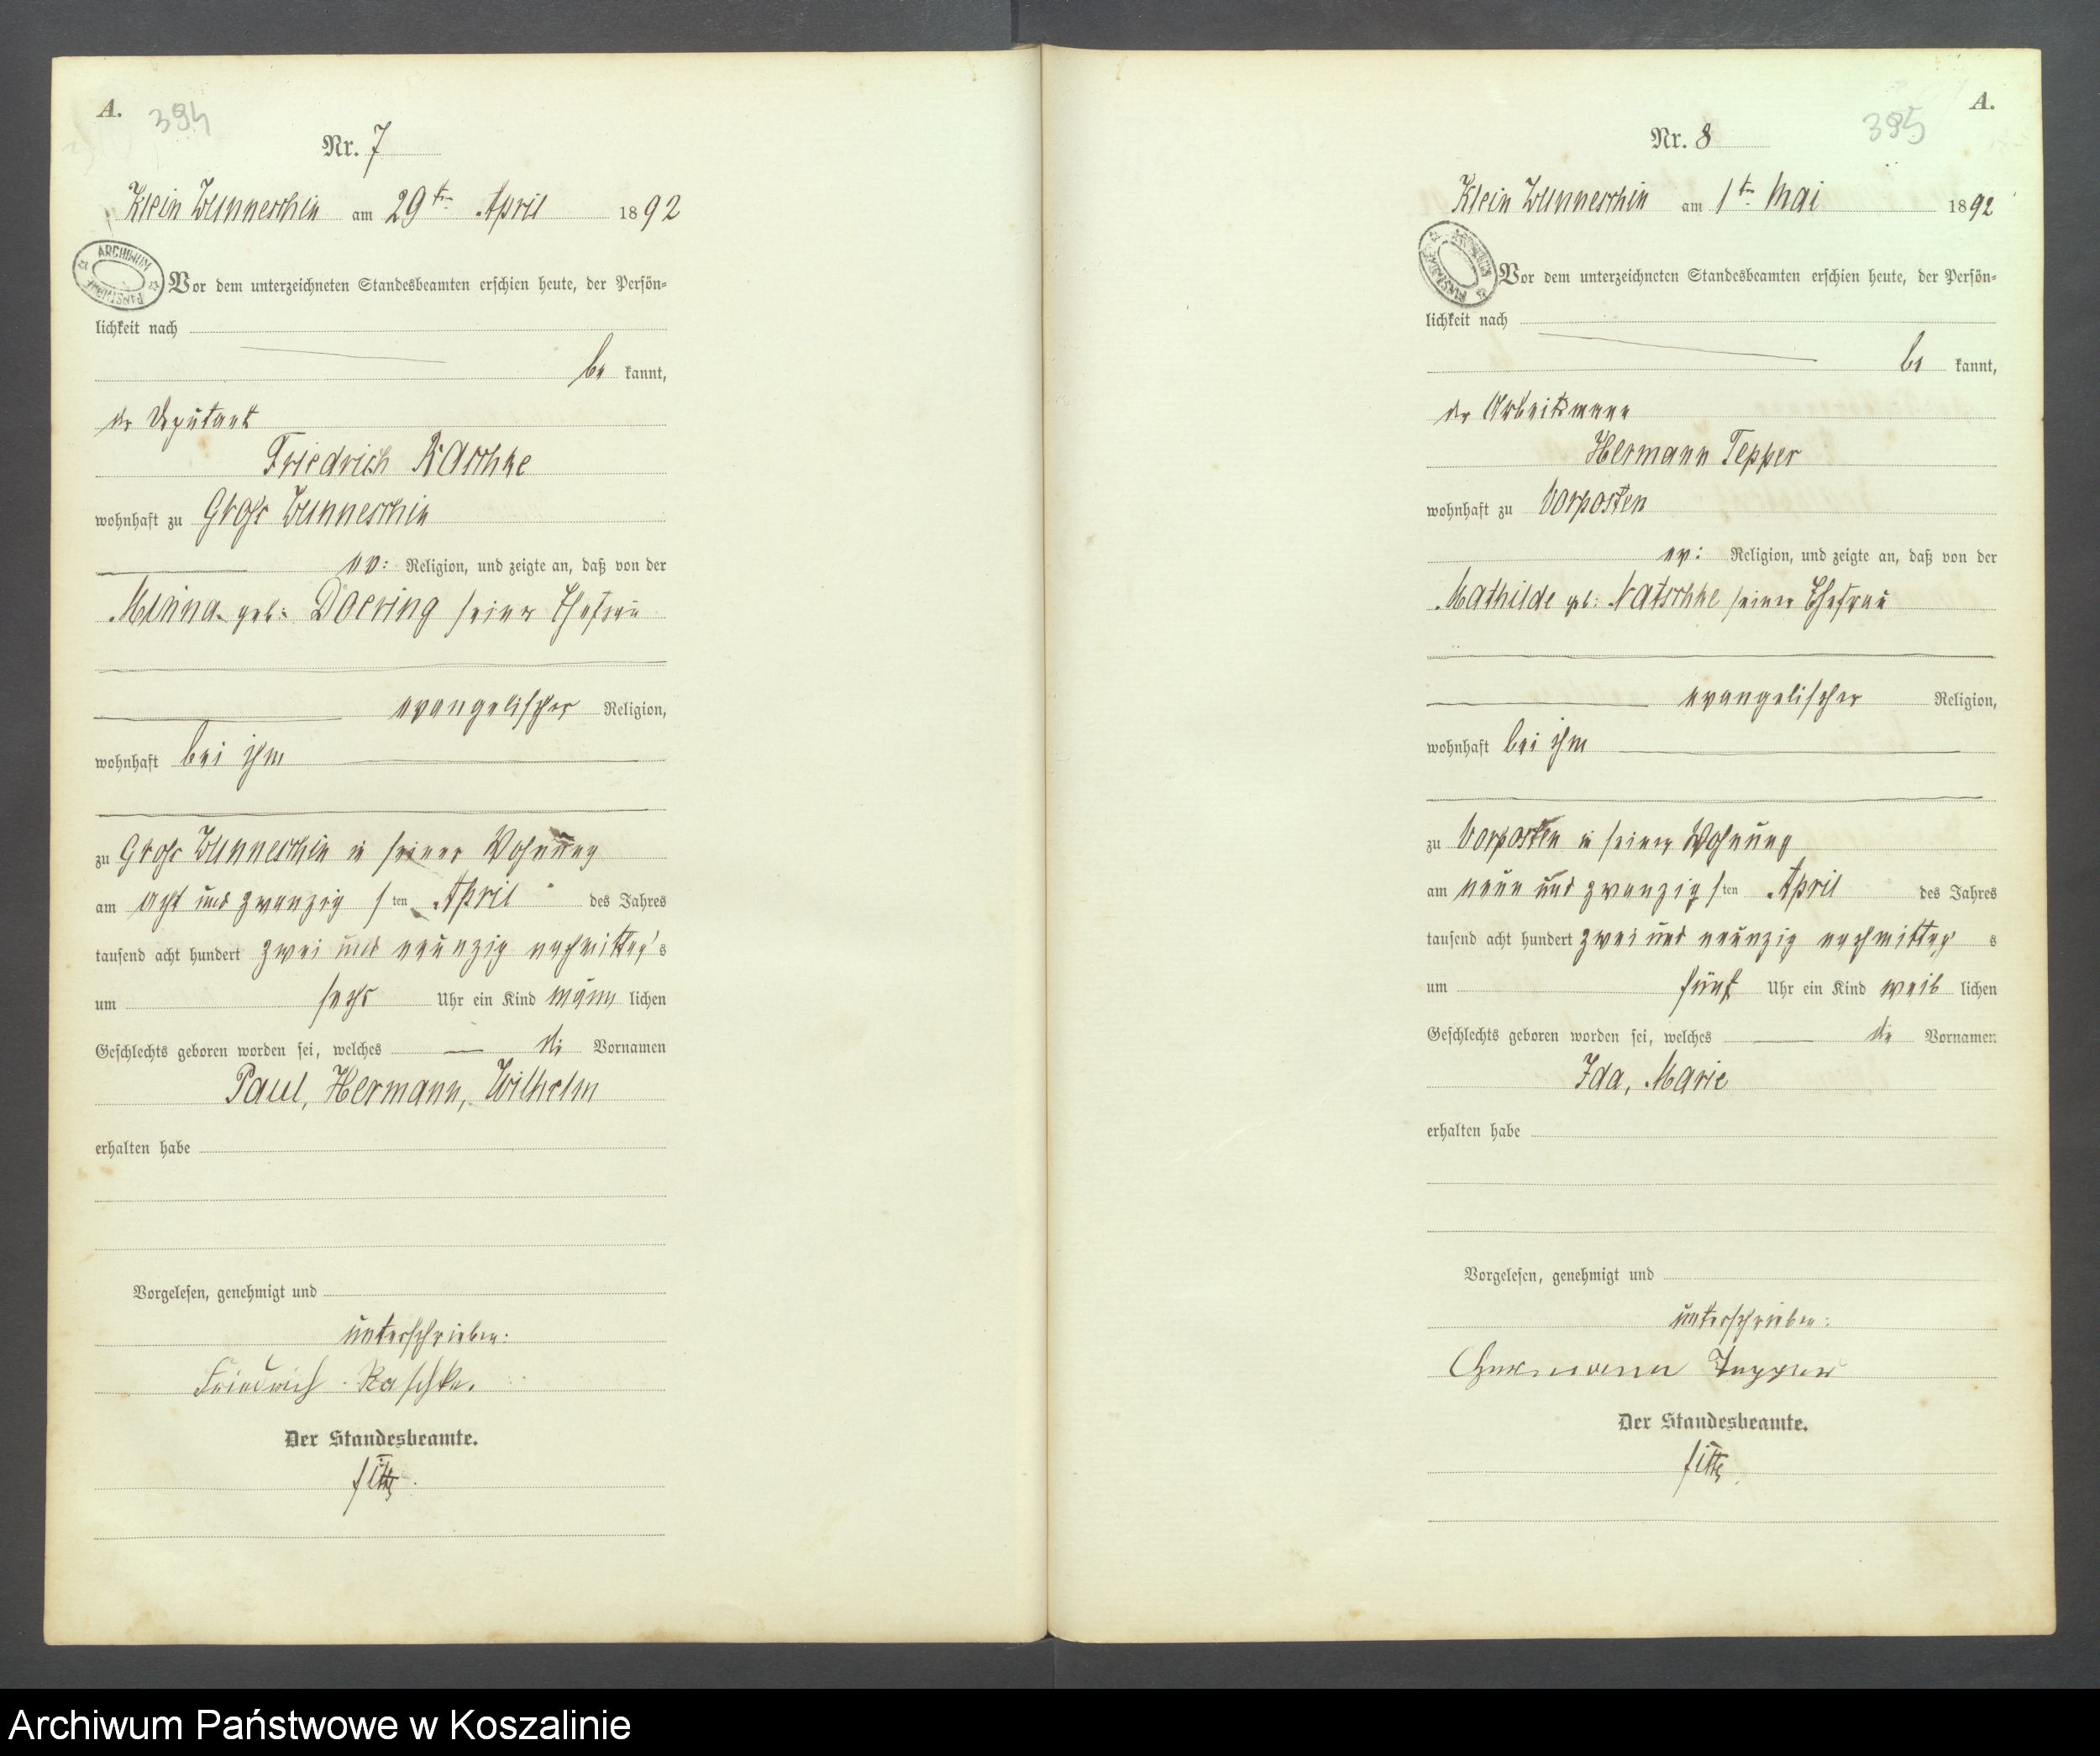 A.
394
Nr. 7
Klein Wunneschin am 29ten April 1892
ARCHIWUM PAŃSTWOWE
Vor dem unterzeichneten Standesbeamten erschien heute, der Persön-
lichkeit nach
be kannt,
der Deputant
Friedrich Raschke
wohnhaft zu Groß Wunneschin
ev: Religion, und zeigte an, daß von der
Minna geb: Doering seiner Ehefrau
evangelischer Religion,
wohnhaft bei ihm
zu Groß Wunneschin in seiner Wohnung
am acht und zwanzig sten April des Jahres
tausend acht hundert zwei und neunzig nachmittag's
um sechs Uhr ein Kind männ lichen
Geschlechts geboren worden sei, welches die Vornamen
Paul, Hermann, Wilhelm
erhalten habe
Vorgelesen, genehmigt und
unterschrieben:
Friedrich Raschke.
Der Standesbeamte.
A.
395
Nr. 8
Klein Wunneschin am 1ten Mai 1892
ARCHIWUM PAŃSTWOWE
Vor dem unterzeichneten Standesbeamten erschien heute, der Persön-
lichkeit nach
be kannt,
der Arbeitsmann
Hermann Tepper
wohnhaft zu Vorposten
ev: Religion, und zeigte an, daß von der
Mathilde geb: Natschke seiner Ehefrau
evangelischer Religion,
wohnhaft bei ihm
zu Vorposten in seiner Wohnung
am neun und zwanzig sten April des Jahres
tausend acht hundert zwei und neunzig nachmittag s
um fünf Uhr ein Kind weib lichen
Geschlechts geboren worden sei, welches die Vornamen
Ida, Marie
erhalten habe
Vorgelesen, genehmigt und
unterschrieben:
Hermann Tepper
Der Standesbeamte.
Archiwum Państwowe w Koszalinie